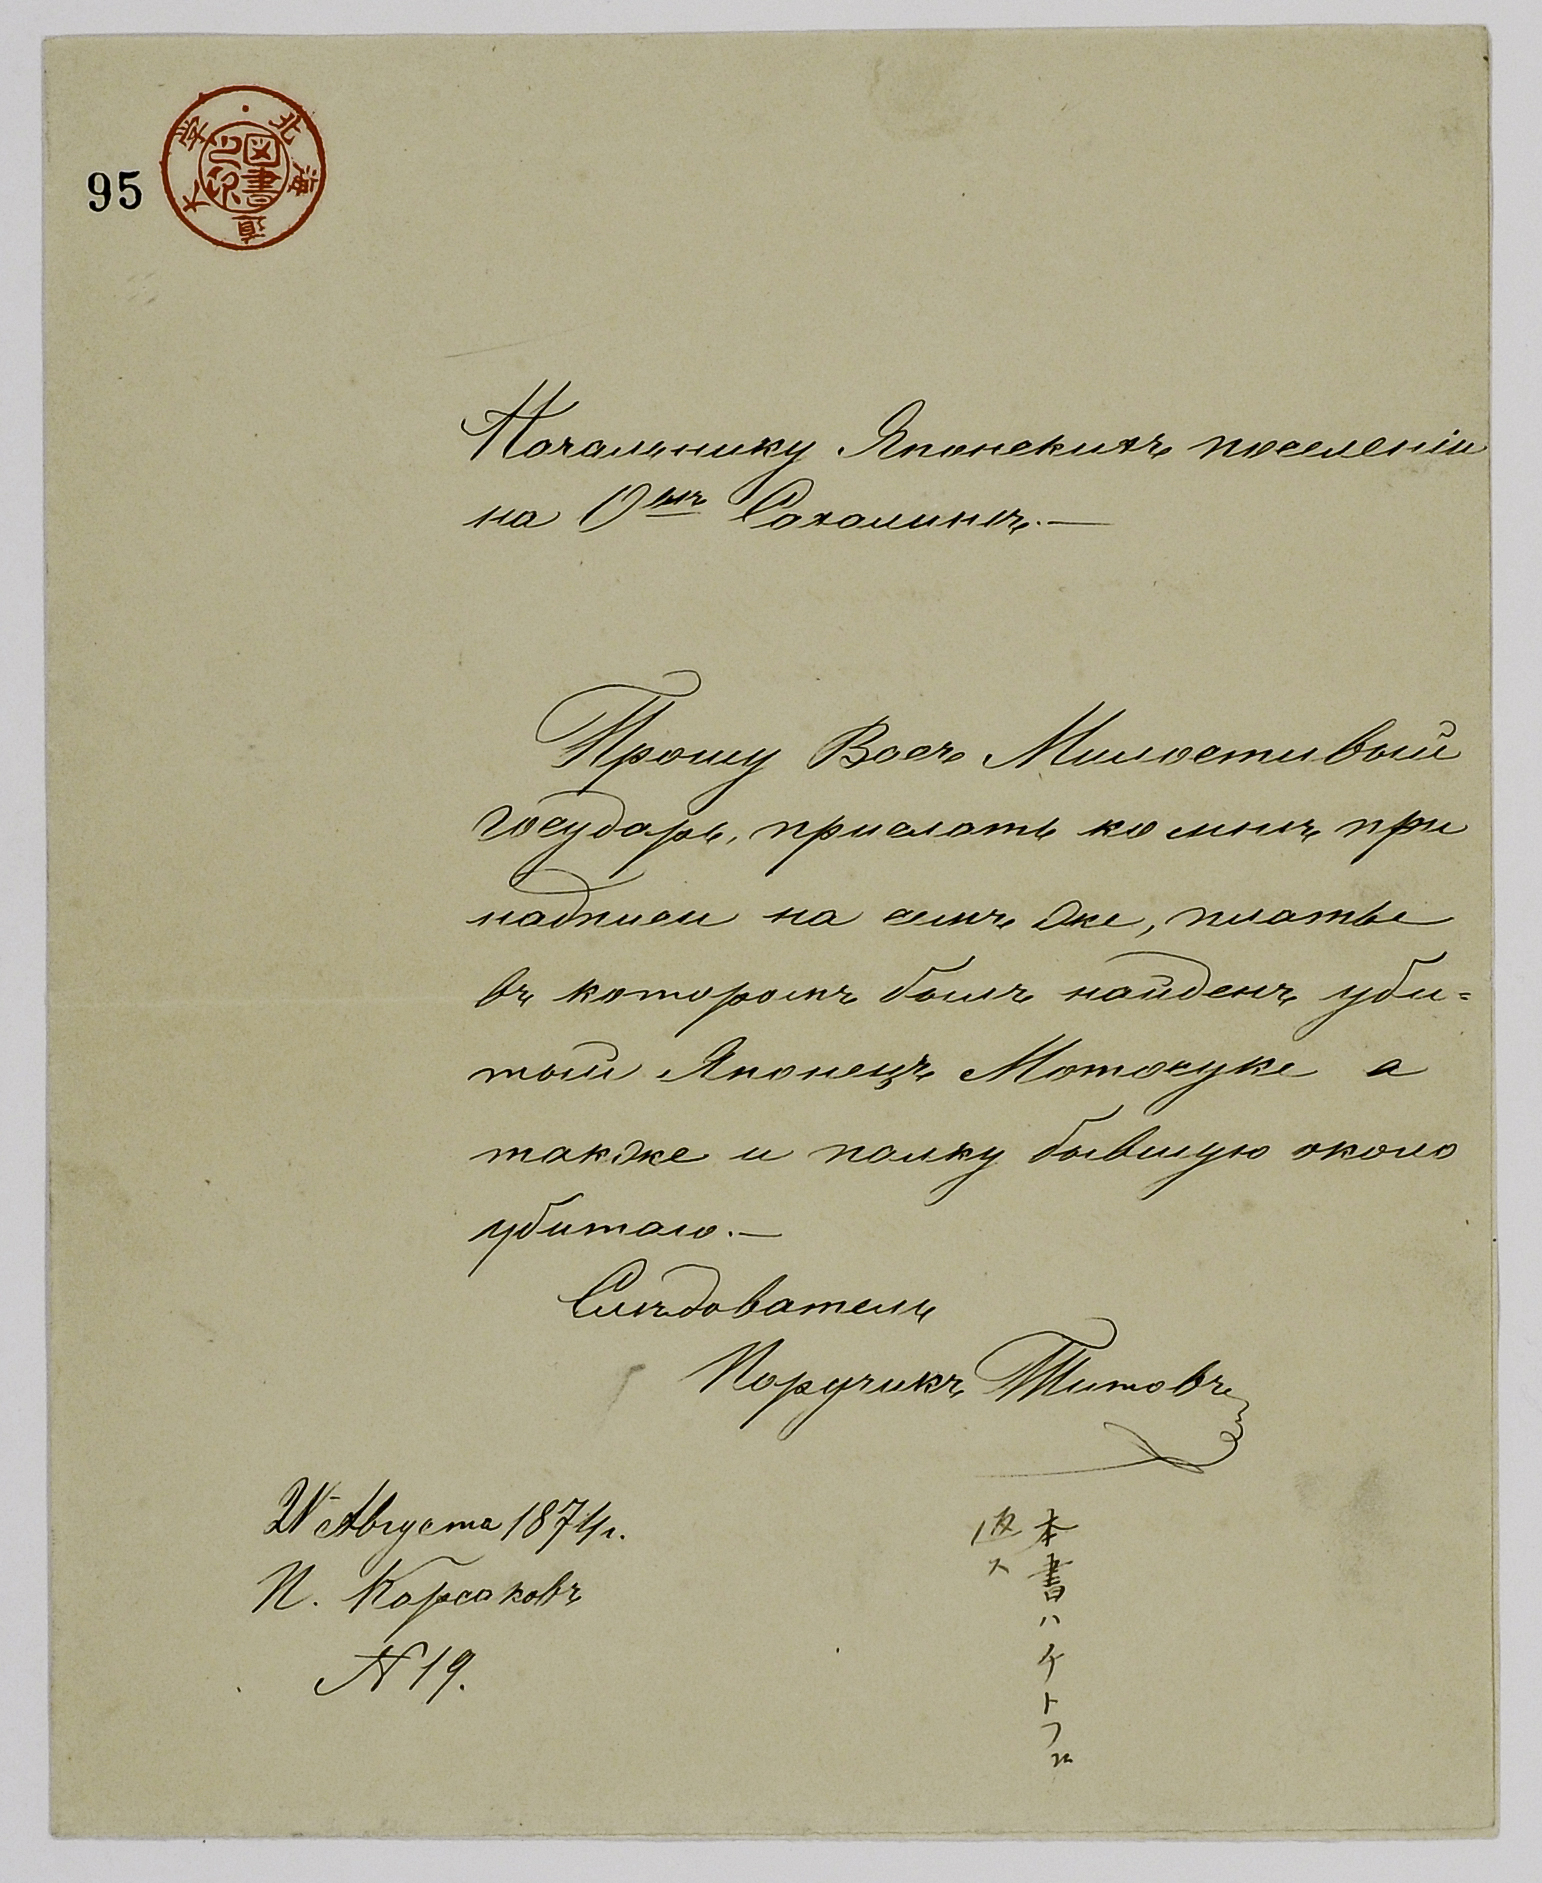 95
北海道大学
図書之印
Начальнику Японскихъ поселеній
на О-вѣ Сахалинѣ.—
Прошу Васъ Милостивый
государь, прислать ко мнѣ при
надписи на семъ же, платье
въ которомъ былъ найденъ уби=
тый Японецъ Мотоскуке а
также и палку бывшую около
убитаго.—
Слѣдователь
Поручикъ Титовъ
Августа 1874 г.
П. Корсаковъ
N 19.
本書ハケトフヱ
返ス